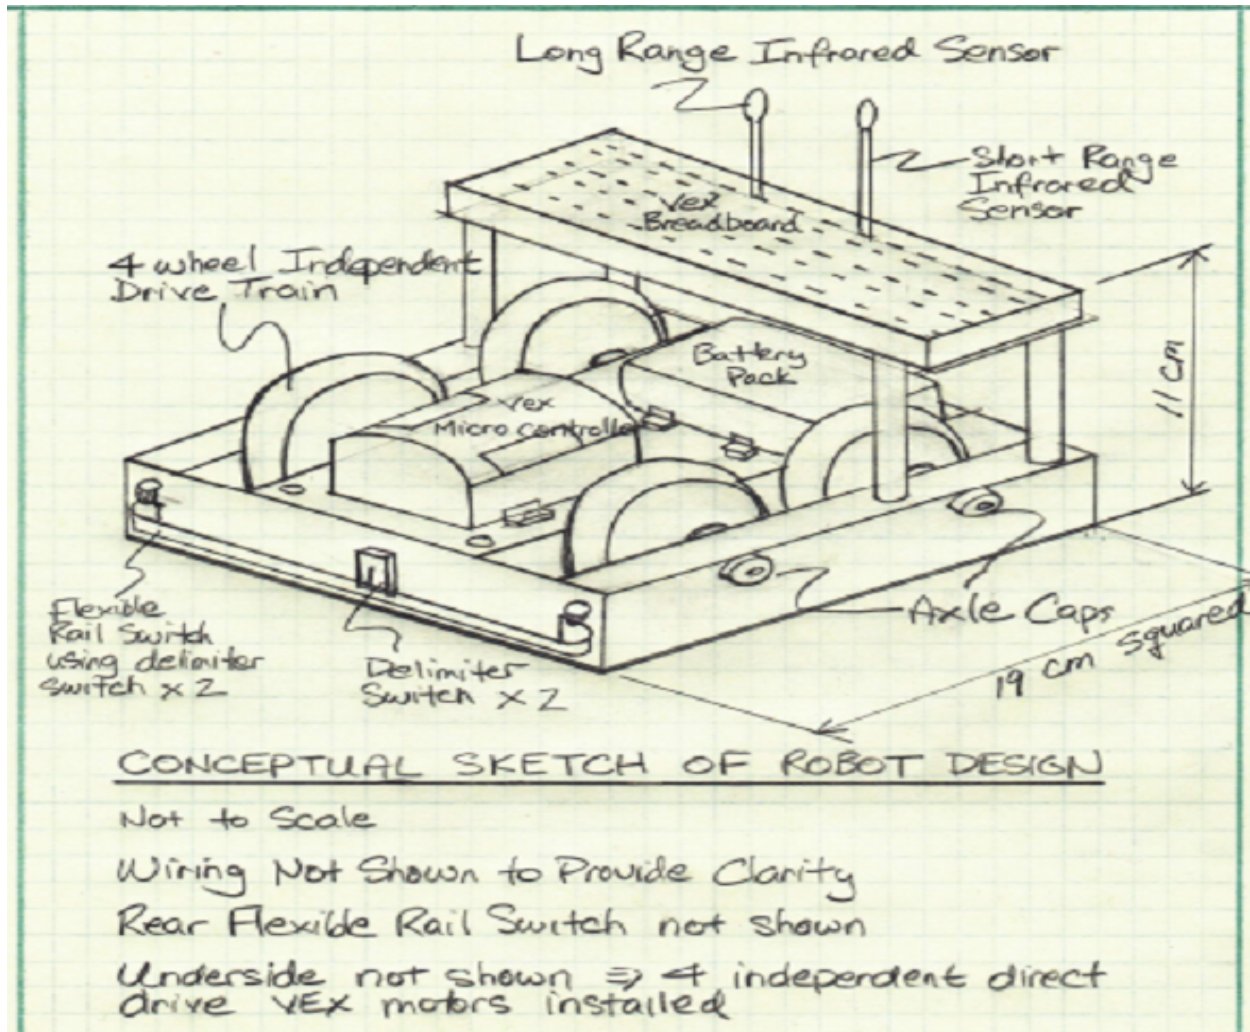 Long Range Infrared Sensor
Short Range
Infrared
Sensor
Vex
Breadboard
4 wheel Independent
Drive Train
Battery
Pack
Vex
Micro controller
11 cm
Flexible
Rail Switch
using delimiter
switch x 2
Delimiter
Switch x 2
Axle Caps
19 cm squared
CONCEPTUAL SKETCH OF ROBOT DESIGN
Not to Scale
Wiring Not Shown to Provide Clarity
Rear Flexible Rail Switch not shown
Underside not shown ⇒ 4 independent direct
drive VEX motors installed